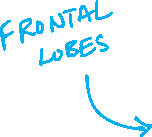 FRONTAL
LOBES